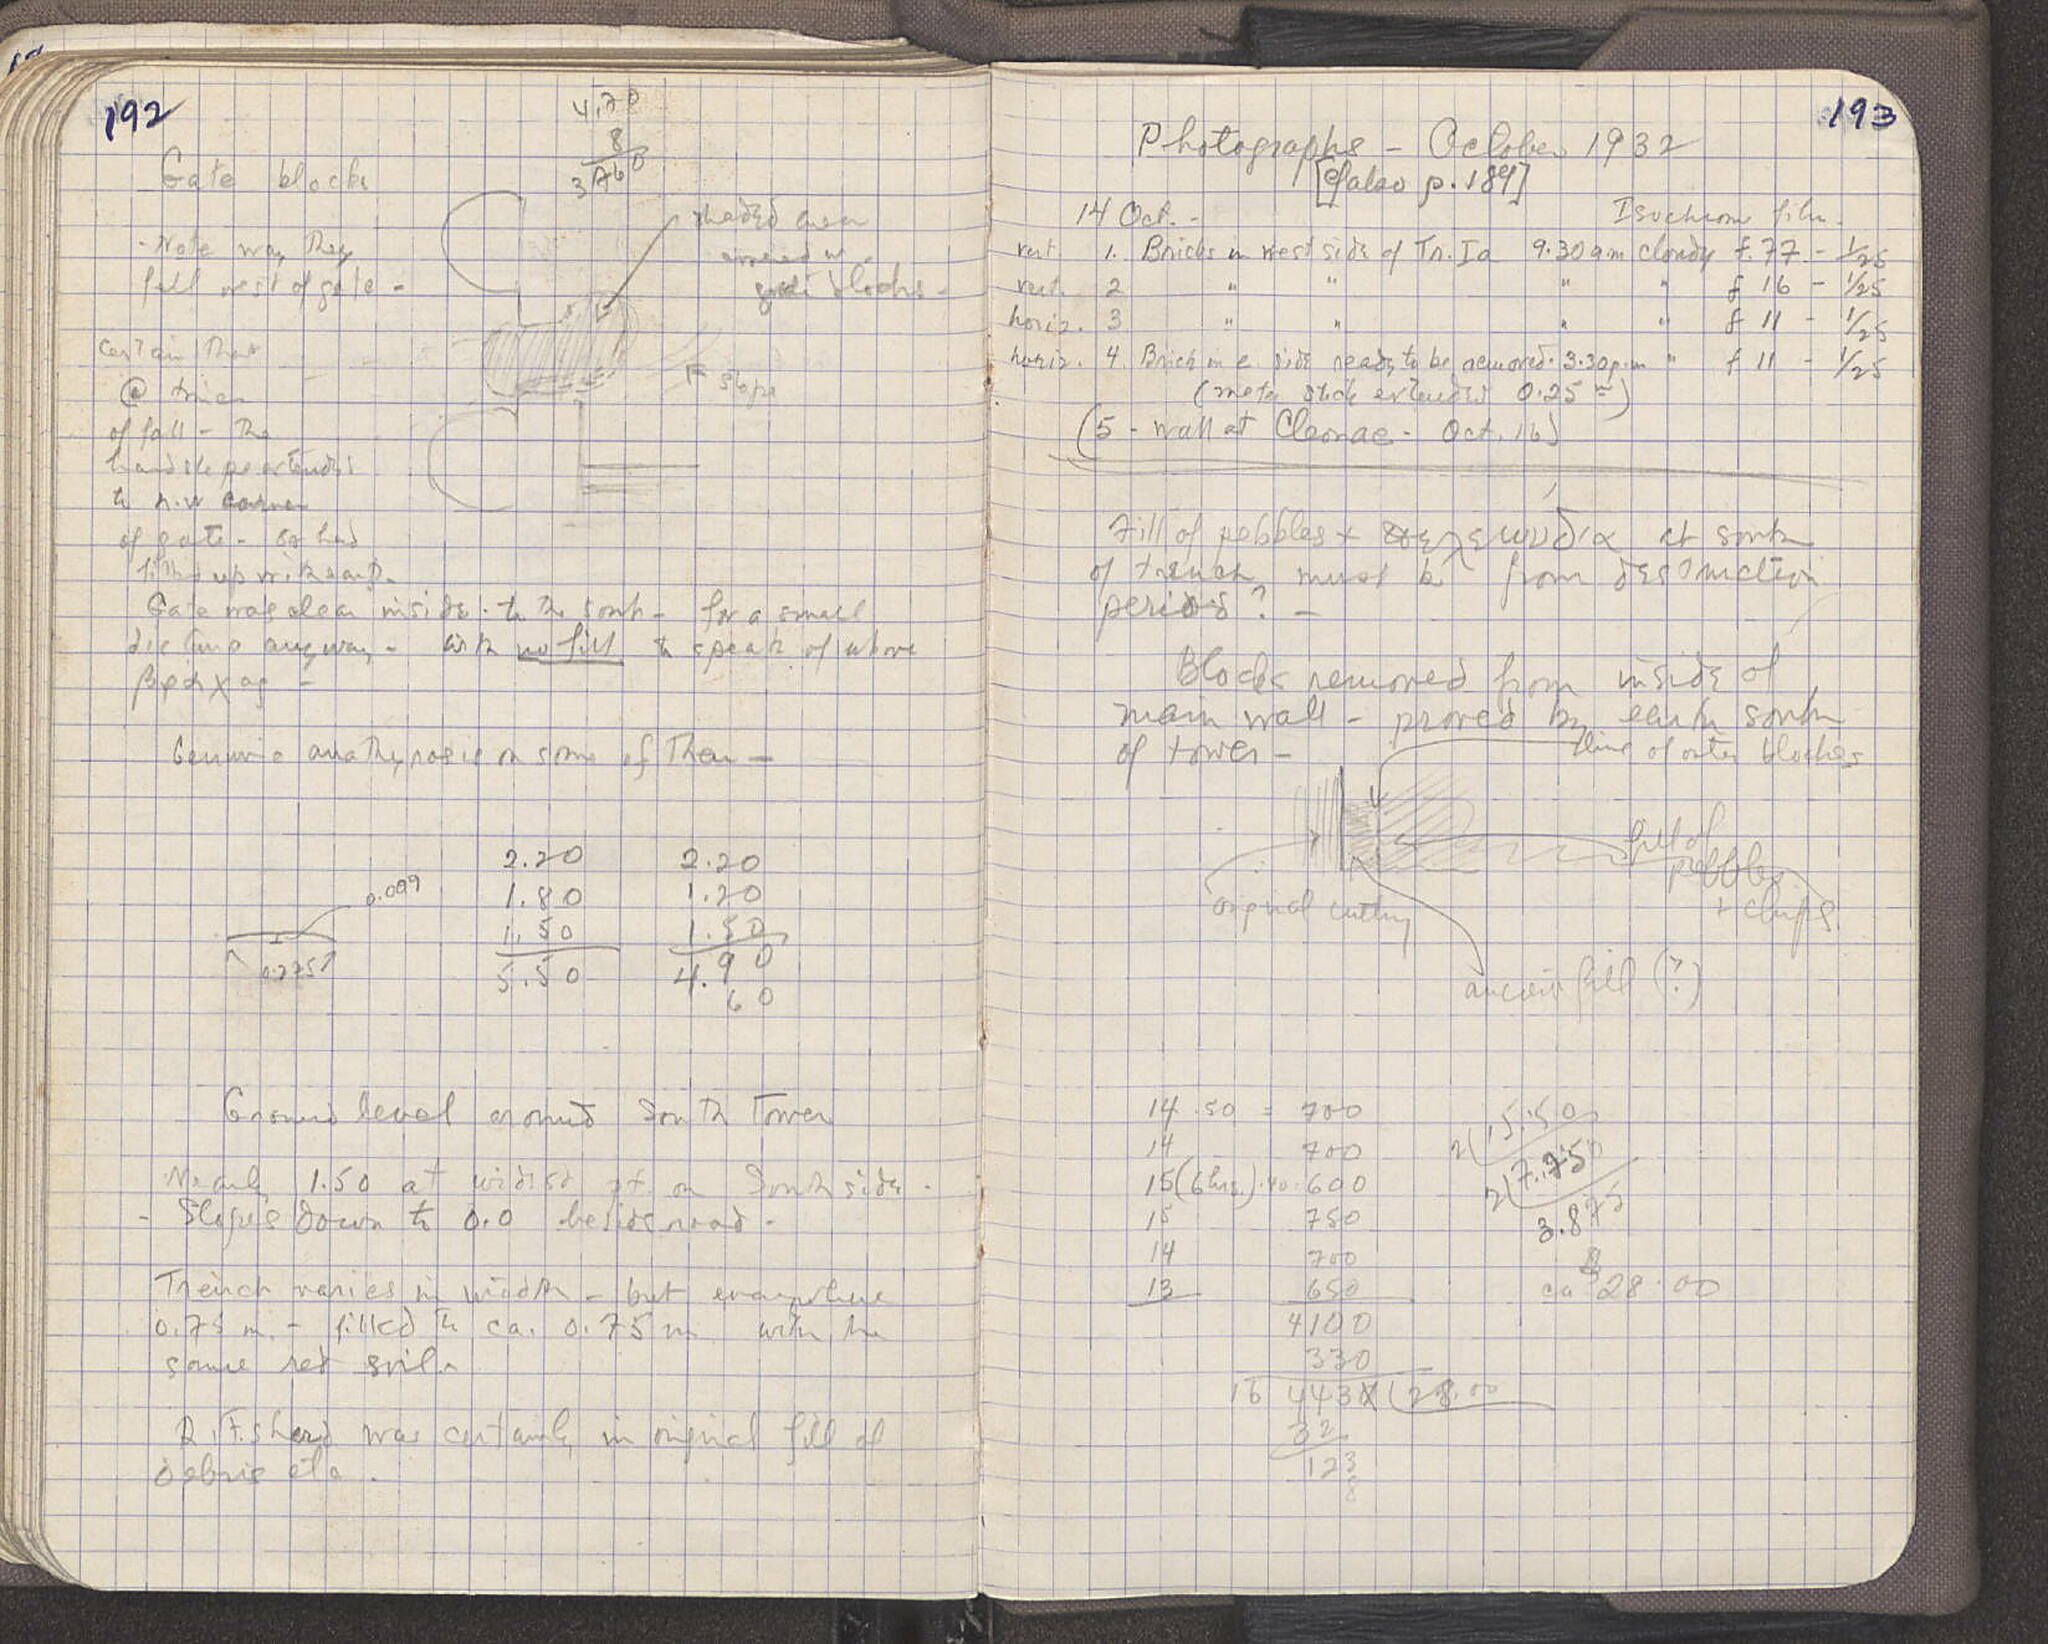 192
4.70
8
3760
Gate blocks
shaded area
covered w.
gate blocks -
- Note way they
fell west of gate -
slope
Certain that
@ time
of fall - the
hard slope extended
to n.w corner
of gate - or had
filled up with sand.
Gate was clear inside - to the south - for a small
distance anyway - with no fill to speak of above
βράχος -
anathyrosis on some of them -
2.20
1.80
1.50
5.50
2.20
1.20
1.50
4.90
60
0.099
0.275
Ground level around South Tower
Nearly 1.50 at widest pt. on South side.
- Slopes down to 0.0 beside road -
Trench varies in width - but everywhere
0.75 m. - filled to ca. 0.75 m with the
same red soil.
R.F. sherd was certainly in original fill of
debris etc.
193
Photographs - October 1932
[cf also p. 189]
14 Oct. - Isochrom film.
vert. 1. Bricks in west side of Tr. Ia 9.30 a.m cloudy f. 7.7 - 1/25
vert. 2 " " " " f 16 - 1/25
horiz. 3 " " " " f 11 - 1/25
horiz. 4. Brick in e. side ready to be removed. 3.30 p.m " f 11 - 1/25
(meter stick extended 0.25 m)
(5 - wall at Cleonae - Oct. 16)
Fill of pebbles + at south
of trench must be from destruction
period? -
Blocks removed from inside of
main wall - proved by earth south
of tower -
line of outer blocks
fill of
pebbles
+ chips
original cutting
ancient fill (?)
14 .50 = 700
14 700
15 (6 hrs.) .40. 600
15 750
14 700
13 650
4100
330
16 443 (28.00
32
123
8
2(15.50
2(7.750
3.875
8
ca 28.00